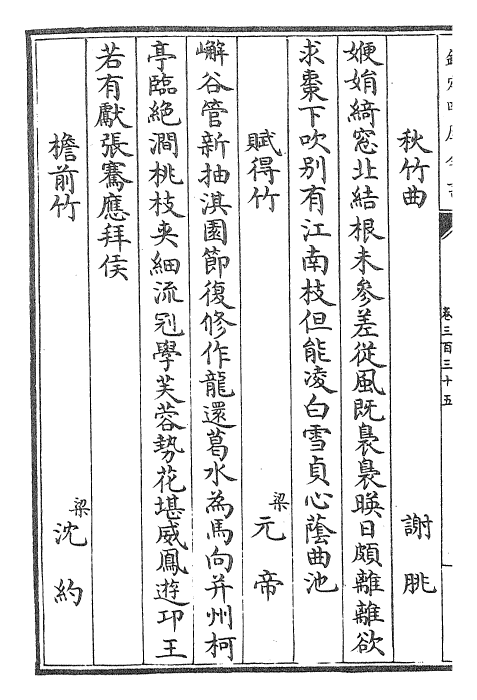 秋竹曲 謝朓
娩娟綺窻北結根未參差從風既裊裊暎日頗離離欲
求棗下吹别有江南枝但能凌白雪貞心蔭曲池
賦得竹 梁元帝
嶰谷管新抽淇園節復修作龍還葛水為馬向并州柯
亭臨絶澗桃枝夾細流冠學芙蓉勢花堪威鳳遊卭王
若有獻張騫應拜侯
檐前竹 梁沈約
卷三百三十五